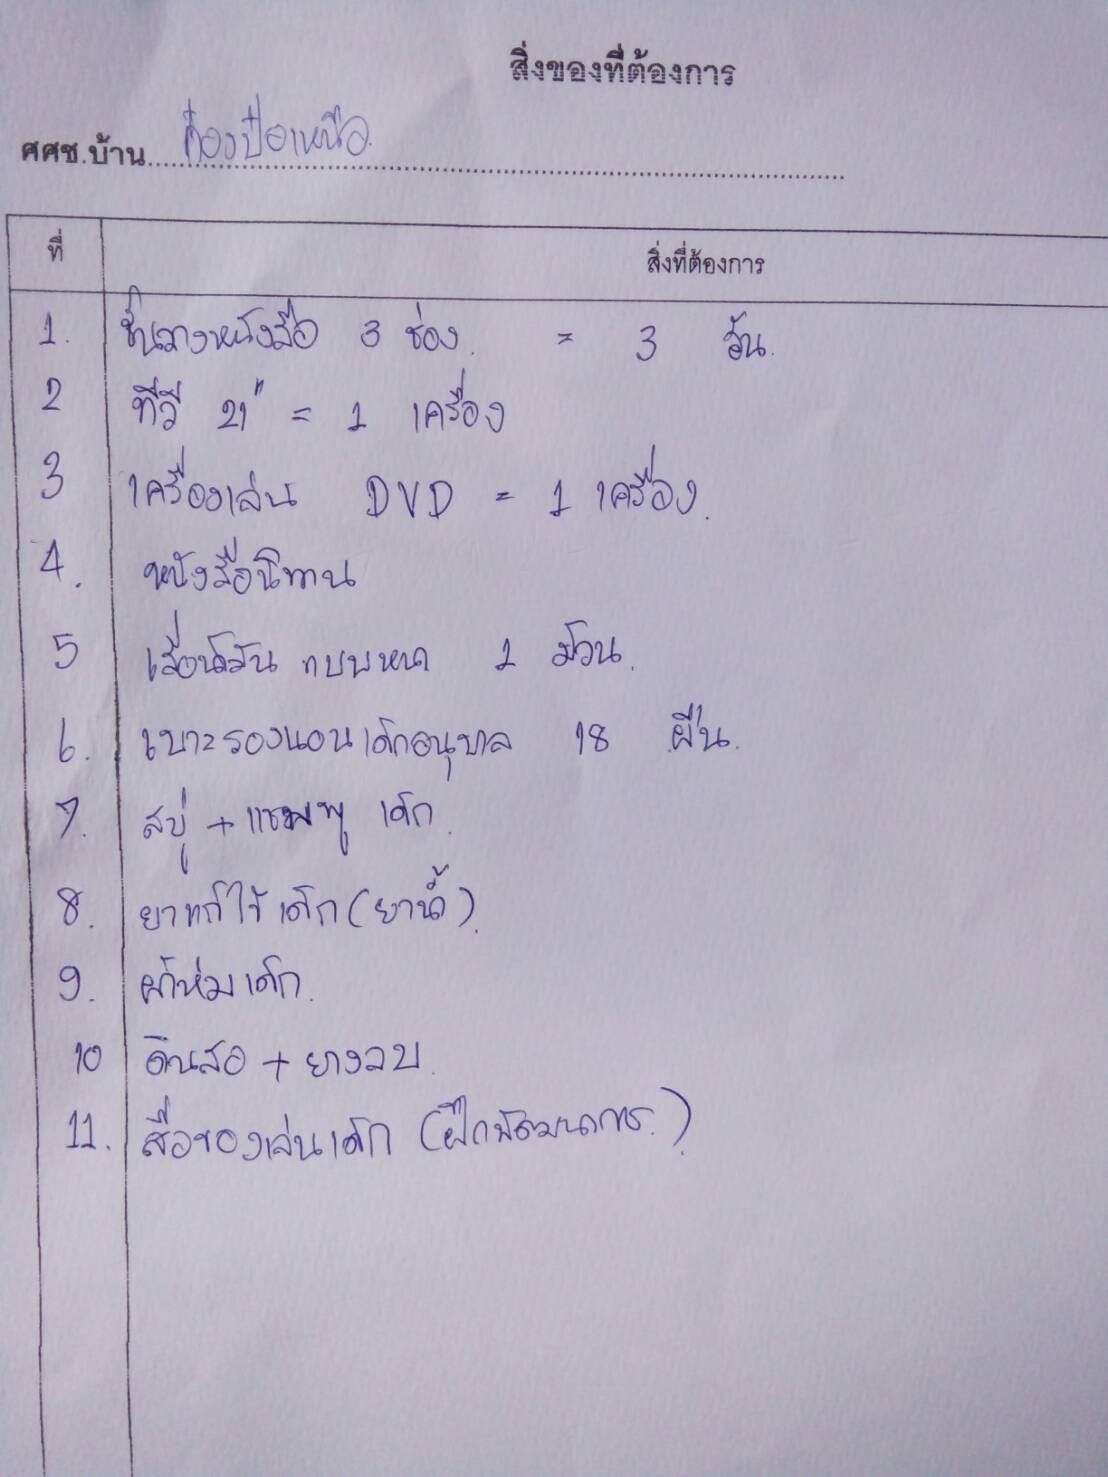 สิ่งของที่ต้องการ
ศศช.บ้าน ก่อวงป๋อเหนือ
ที่ สิ่งที่ต้องการ
1. ชั้นวางหนังสือ 3 ช่อง. = 3 อัน.
2 ทีวี 21" = 1 เครื่อง
3 เครื่องเล่น DVD = 1 เครื่อง.
4. หนังสือนิทาน
5 เสื่อน้ำมัน แบบหนา 1 ม้วน.
6. เบาะรองนอนเด็กอนุบาล 18 ผืน.
7. สบู่ + แชมพู เด็ก.
8. ยาแก้ไข้เด็ก (ยาน้ำ).
9. ผ้าห่มเด็ก.
10 ดินสอ + ยางลบ.
11. สื่อของเล่นเด็ก (ฝึกพัฒนาการ.).